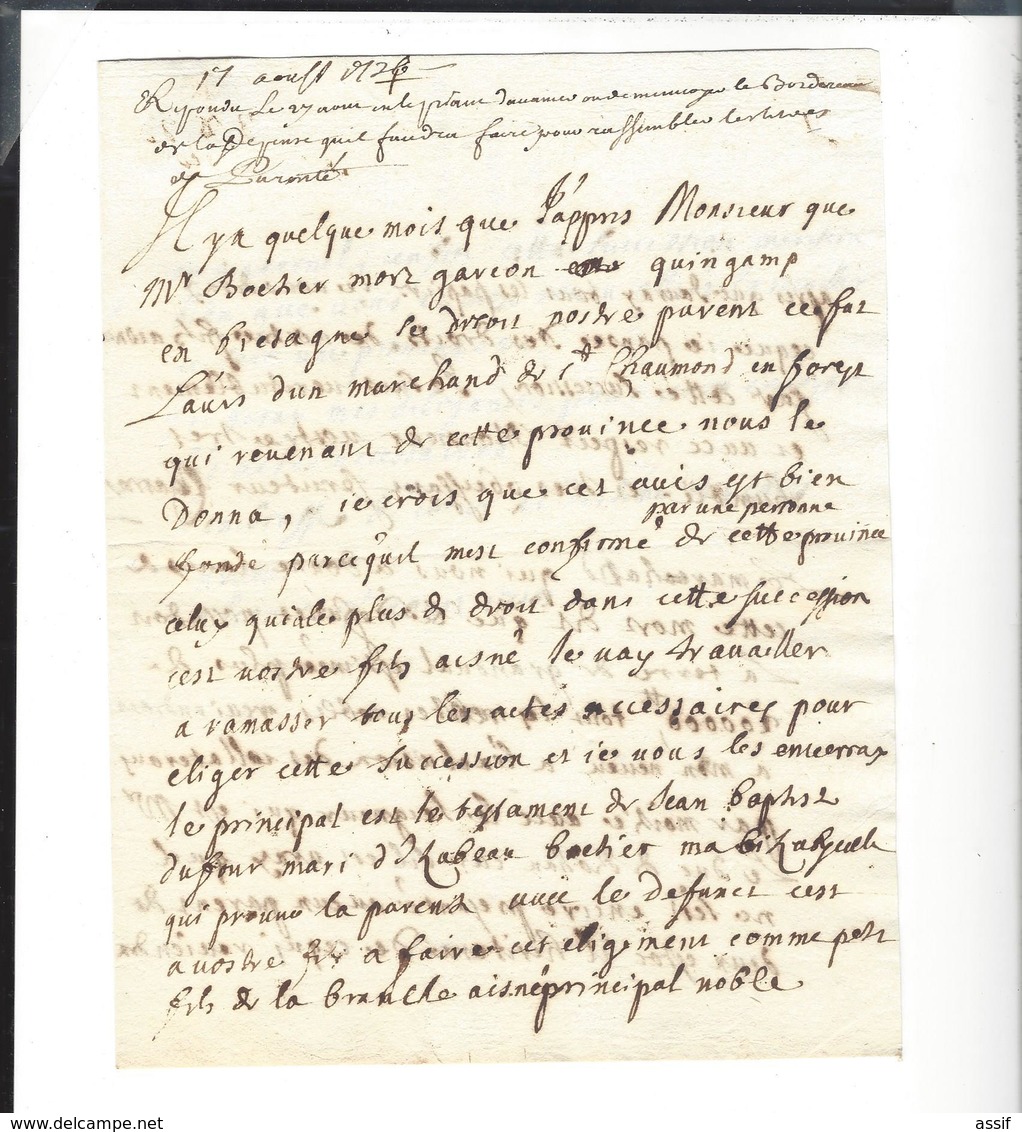 17 aoust 172
Repondu Le 27 aout en le priant davance de menvoyer le Bordereau
de la Depense quil faudra faire pour rassembler les titres
de Parenté
Il y a quelque mois que J'appris Monsieur que
Mr Boetier mort garcon quingamp
en bretagne se disoit nostre parent ce fut
Lavis dun marchand de st Chaumond en forest
qui revenant de cette province nous le
Donna, ie crois que cet avis est bien
par une personne
fonde parcequil mest confirmé de cette province
celuy qui a le plus de droit dans cette succession
cest vostre fils aisné le vay travailler
a ramasser tous les actes necessaires pour
eliger cette succession et ie vous les enverray
le principal est le testament de Jean baptist
duffour mari dIzabeau boetier ma bizayeule
qui prouve la parenté avec le defunct cest
a vostre fils a faire cet eligement comme petit
fils de la branche aisné principal noble
assif
www.delcampe.net